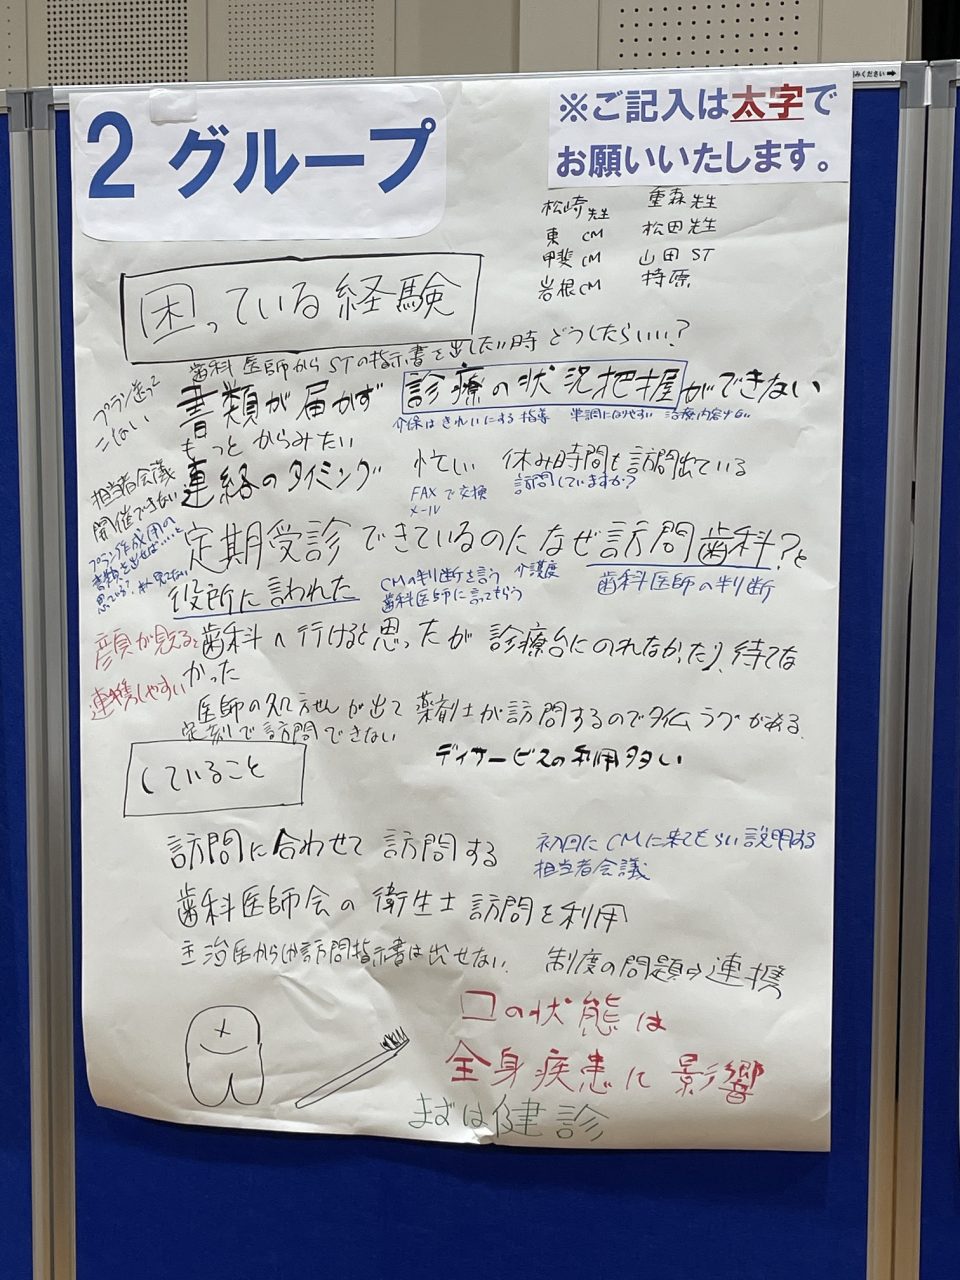 みください→
2 グループ
※ご記入は太字で
お願いいたします。
松崎先生 重森先生
東 CM 松田先生
甲斐CM 山田 ST
岩根CM 持原
困っている経験
歯科医師からSTの指示書を出したい時どうしたらいい?
プラン送って
こない
書類が届かず 診療の状況把握ができない
介保はきれいにする指導 単調になりやすい 治療内容
もっとからみたい
担当者会議
開催できない
連絡のタイミング 忙しい 休み時間も訪問出ている
FAXで交換 訪問していますか?
メール
プラン作成用の
書類を出せば……と
思ってない
定期受診できているのになぜ訪問歯科?と
役所に言われた CMの判断を言う 介護度 歯科医師の判断
歯科医師に言ってもらう
顔が見えると
連携しやすい
歯科へ行けると思ったが診療台にのれなかったり、待てな
かった
医師の処方せんが出て薬剤士が訪問するのでタイムラグがある。
定刻で訪問できない
デイサービスの利用多い
していること
訪問に合わせて訪問する 初回にCMに来てもらい説明する
担当者会議
歯科医師会の衛生士訪問を利用
主治医からしか訪問指示書は出せない。 制度の問題⇒連携
口の状態は
全身疾患に影響
まずは健診